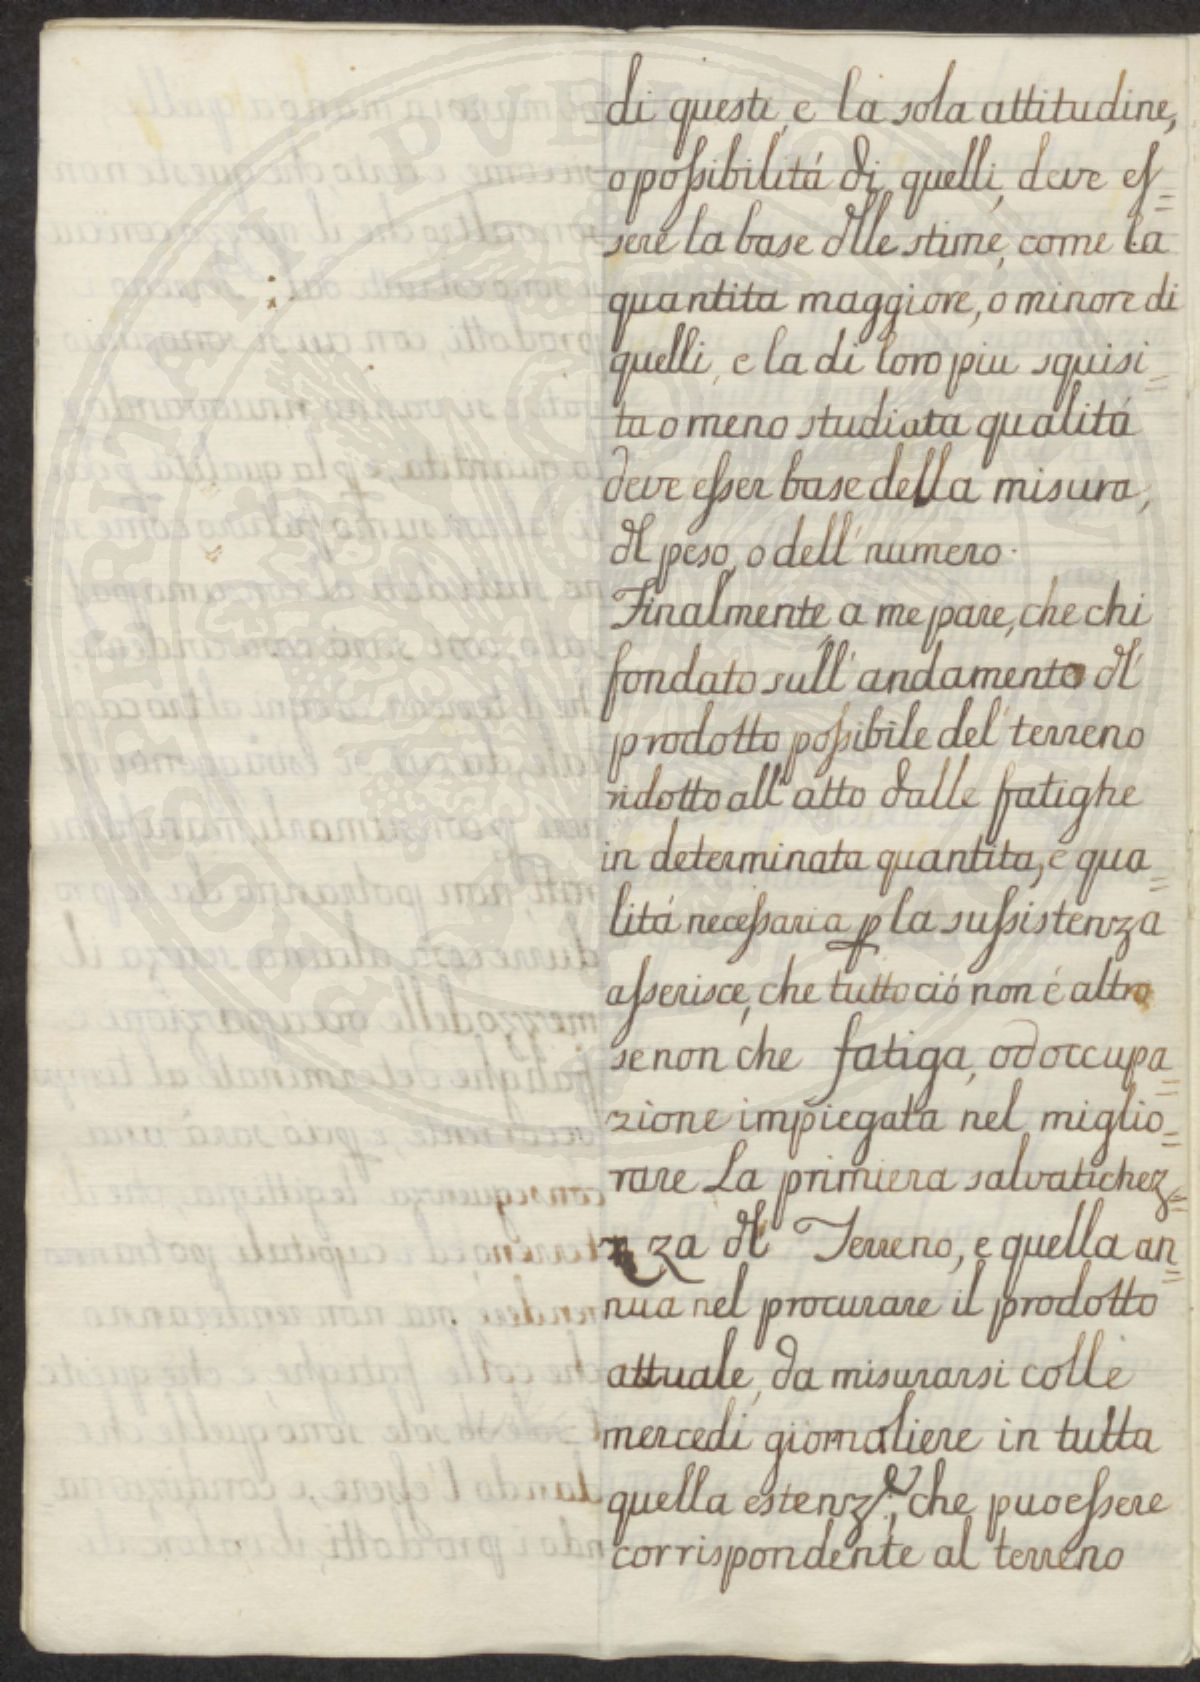 di questi, e la sola attitudine,
o possibilitá di quelli, deve es=
sere la base dlle stime, come la
quantita maggiore, o minore di
quelli, e la di loro piu squisi=
ta o meno studiata qualitá
deve esser base della misura,
dl peso, o dell' numero.
Finalmente, a me pare, che chi
fondato sull' andamento dl'
prodotto possibile del' terreno
ridotto all' atto dalle fatighe
in determinata quantita, e qua=
litá necessaria p la sussistenza
asserisce, che tutto ció non é altro
se non che fatiga, od occupa=
zione impiegata nel miglio=
rare La primiera salvatichez=
za dl' Terreno, e quella an=
nua nel procurare il prodotto
attuale, da misurarsi colle
mercedi giornaliere in tutta
quella estenza, che puo essere
corrispondente al terreno